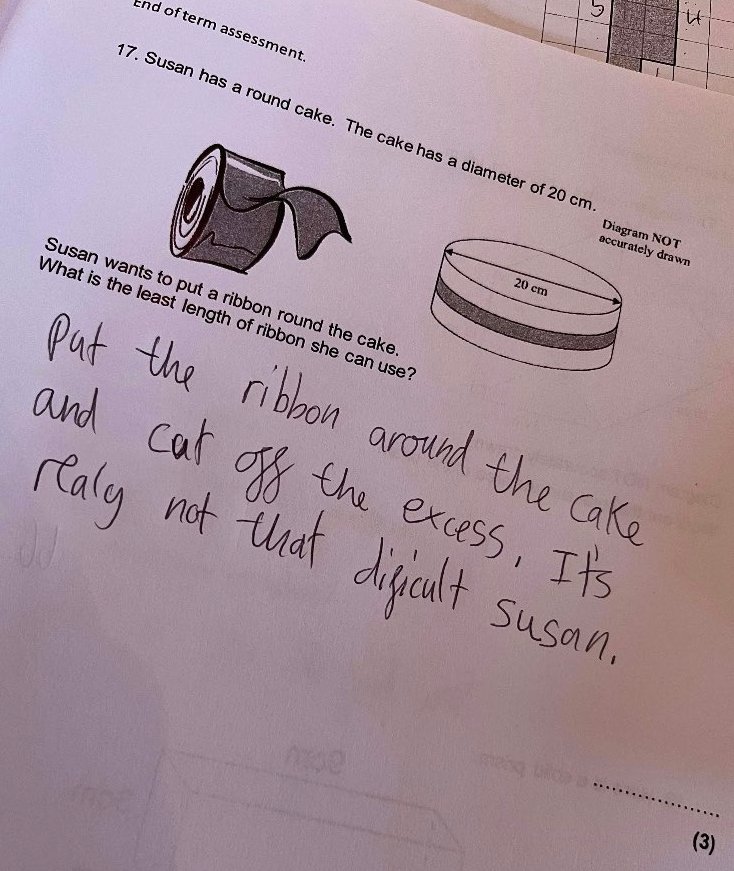 End of term assessment.
17. Susan has a round cake. The cake has a diameter of 20 cm.
Diagram NOT
accurately drawn
20 cm
Susan wants to put a ribbon round the cake.
What is the least length of ribbon she can use?
Put the ribbon around the cake
and cut off the excess, It's
realy not that dificult susan.
(3)